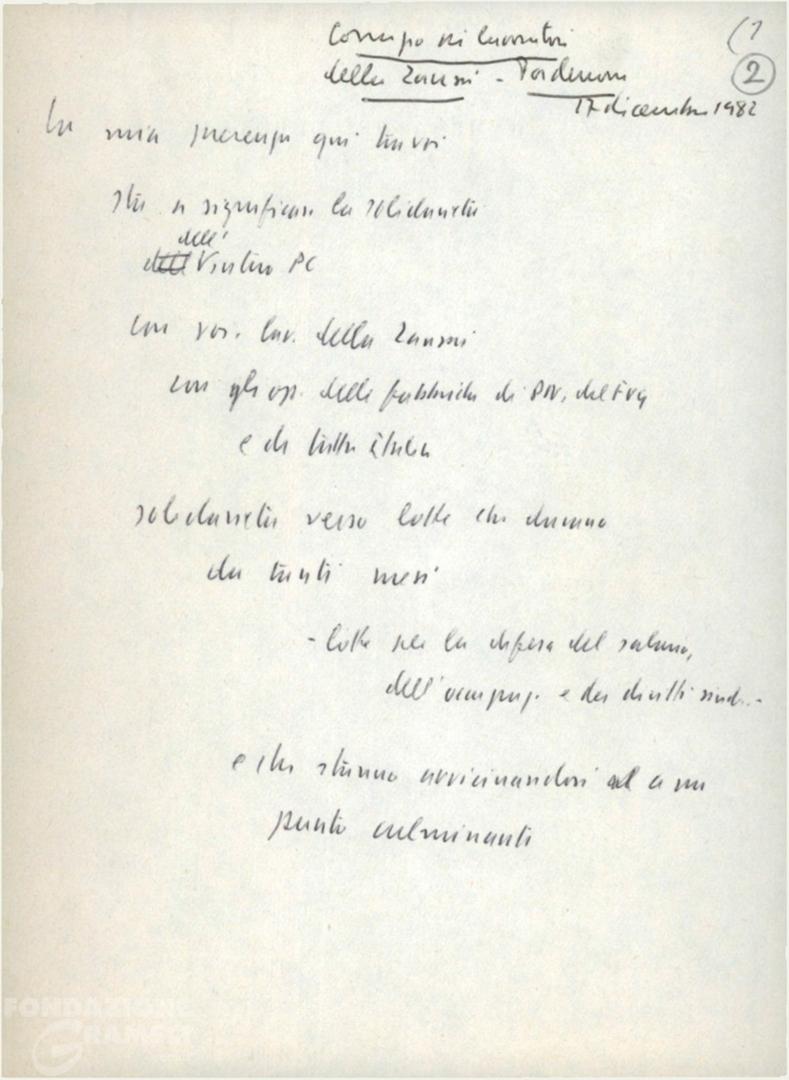 (1
Comizio ai lavoratori
2
della Zanussi - Pordenone
17 dicembre 1982
La mia presenza qui tra voi
sta a significare la solidarietà
dell'
dell intero PC
con voi. lav. della Zanussi
con gli op. delle fabbriche di PN, del FVG
e di tutta Italia
solidarietà verso lotte che durano
da tanti mesi
- lotte per la difesa del salario,
dell'occupaz. e dei diritti sind..-
e che stanno avvicinandosi ad a un
punto culminante
FONDAZIONE
GRAMSCI